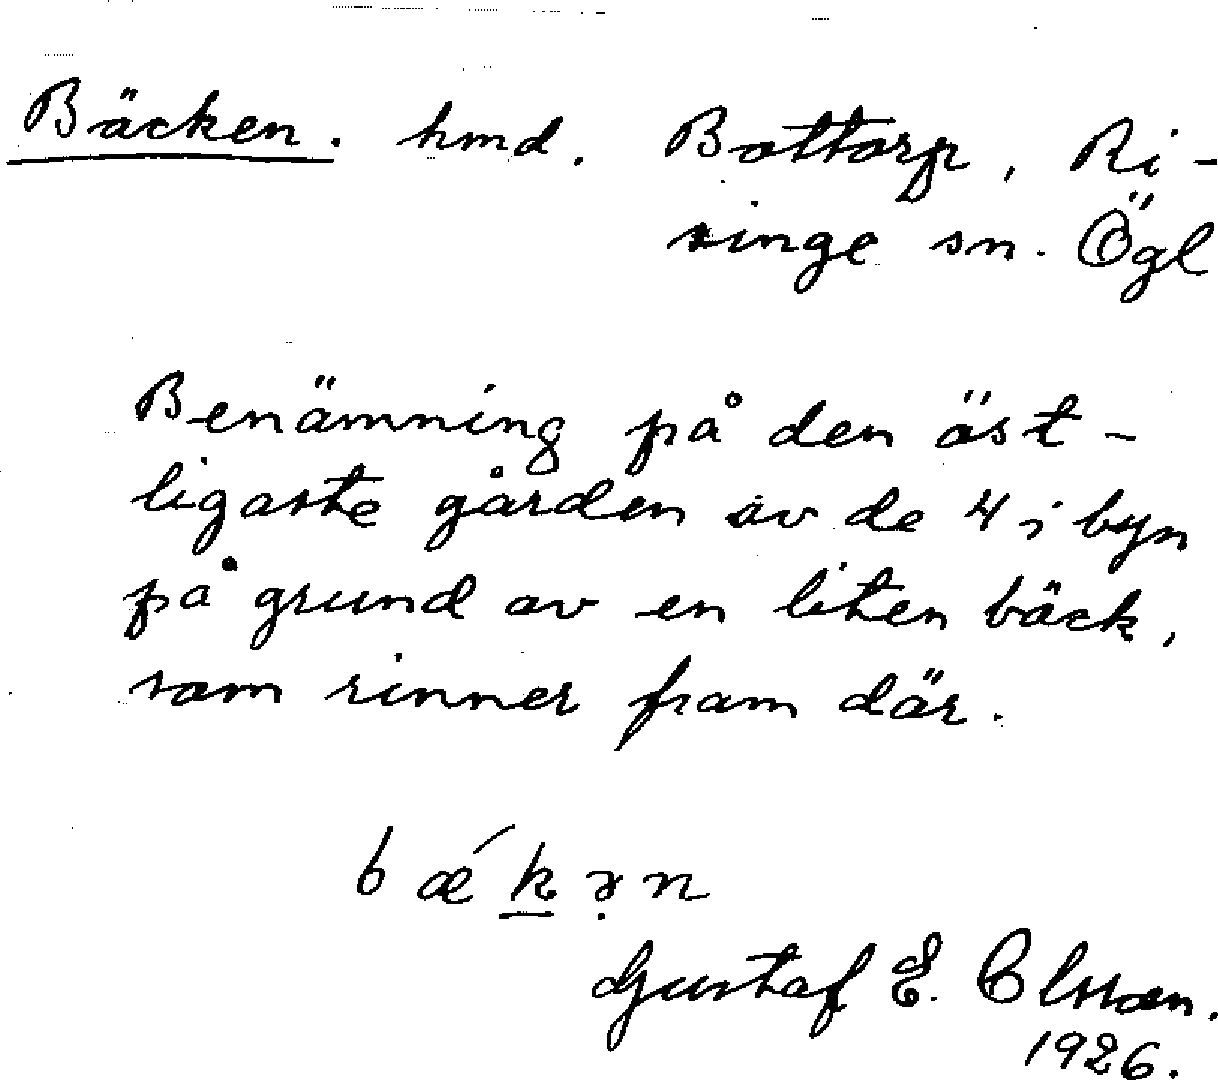 Bäcken. hmd. Bottorp, Ri-
singe sn. Ögl
Benämning på den öst-
ligaste gården av de 4 i byn
på grund av en liten bäck,
som rinner fram där.
bǽk̲ə̣n
Gustaf E. Olsson.
1926.